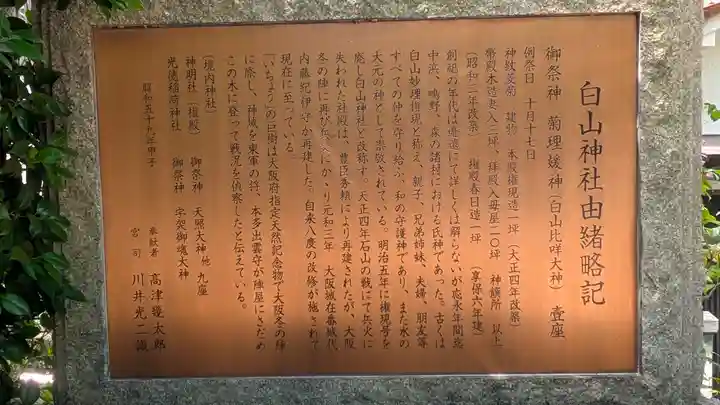 白山神社由緒略記
御祭神 菊理媛神(白山比咩大神) 壹座
例祭日 十月十七日
神紋菱菊 建物 本殿権現造一坪(大正四年改築)
幣殿木造妻入三坪、拝殿入母屋二〇坪 神饌所 以上
(昭和二年改築) 権殿春日造一坪 (享保六年建)
創祀の年代は悠遠にて詳しくは解らないが応永年間迄
中浜、鴫野、森の諸村における氏神であった。古くは
白山妙理権現と称え、親子、兄弟姉妹、夫婦、朋友等
すべての仲を守り給ふ、和の守護神であり、また水の
大元の神として崇敬されている。明治五年に権現号を
廃し白山神社と改称す。天正四年石山の戦にて兵火に
失われた社殿は、豊臣秀頼により再建されたが、大阪
冬の陣に再び兵火にかゝり元和三年 大阪城在番城代
内藤紀伊守が再建した。自来八度の改修が施されて
現在に至っている。
「いちょう」の巨樹は大阪府指定天然記念物で大阪冬の陣
に際し、神域を東軍の将、本多出雲守が陣屋にさだめ
この木に登って戦況を偵察したと伝えている。
(境内神社)
神明社(権殿) 御祭神 天照大神他 九座
光徳稲荷神社 御祭神 宇賀御魂大神
昭和五十九年甲子
奉献者 高津邊太郎
宮司 川井光二識